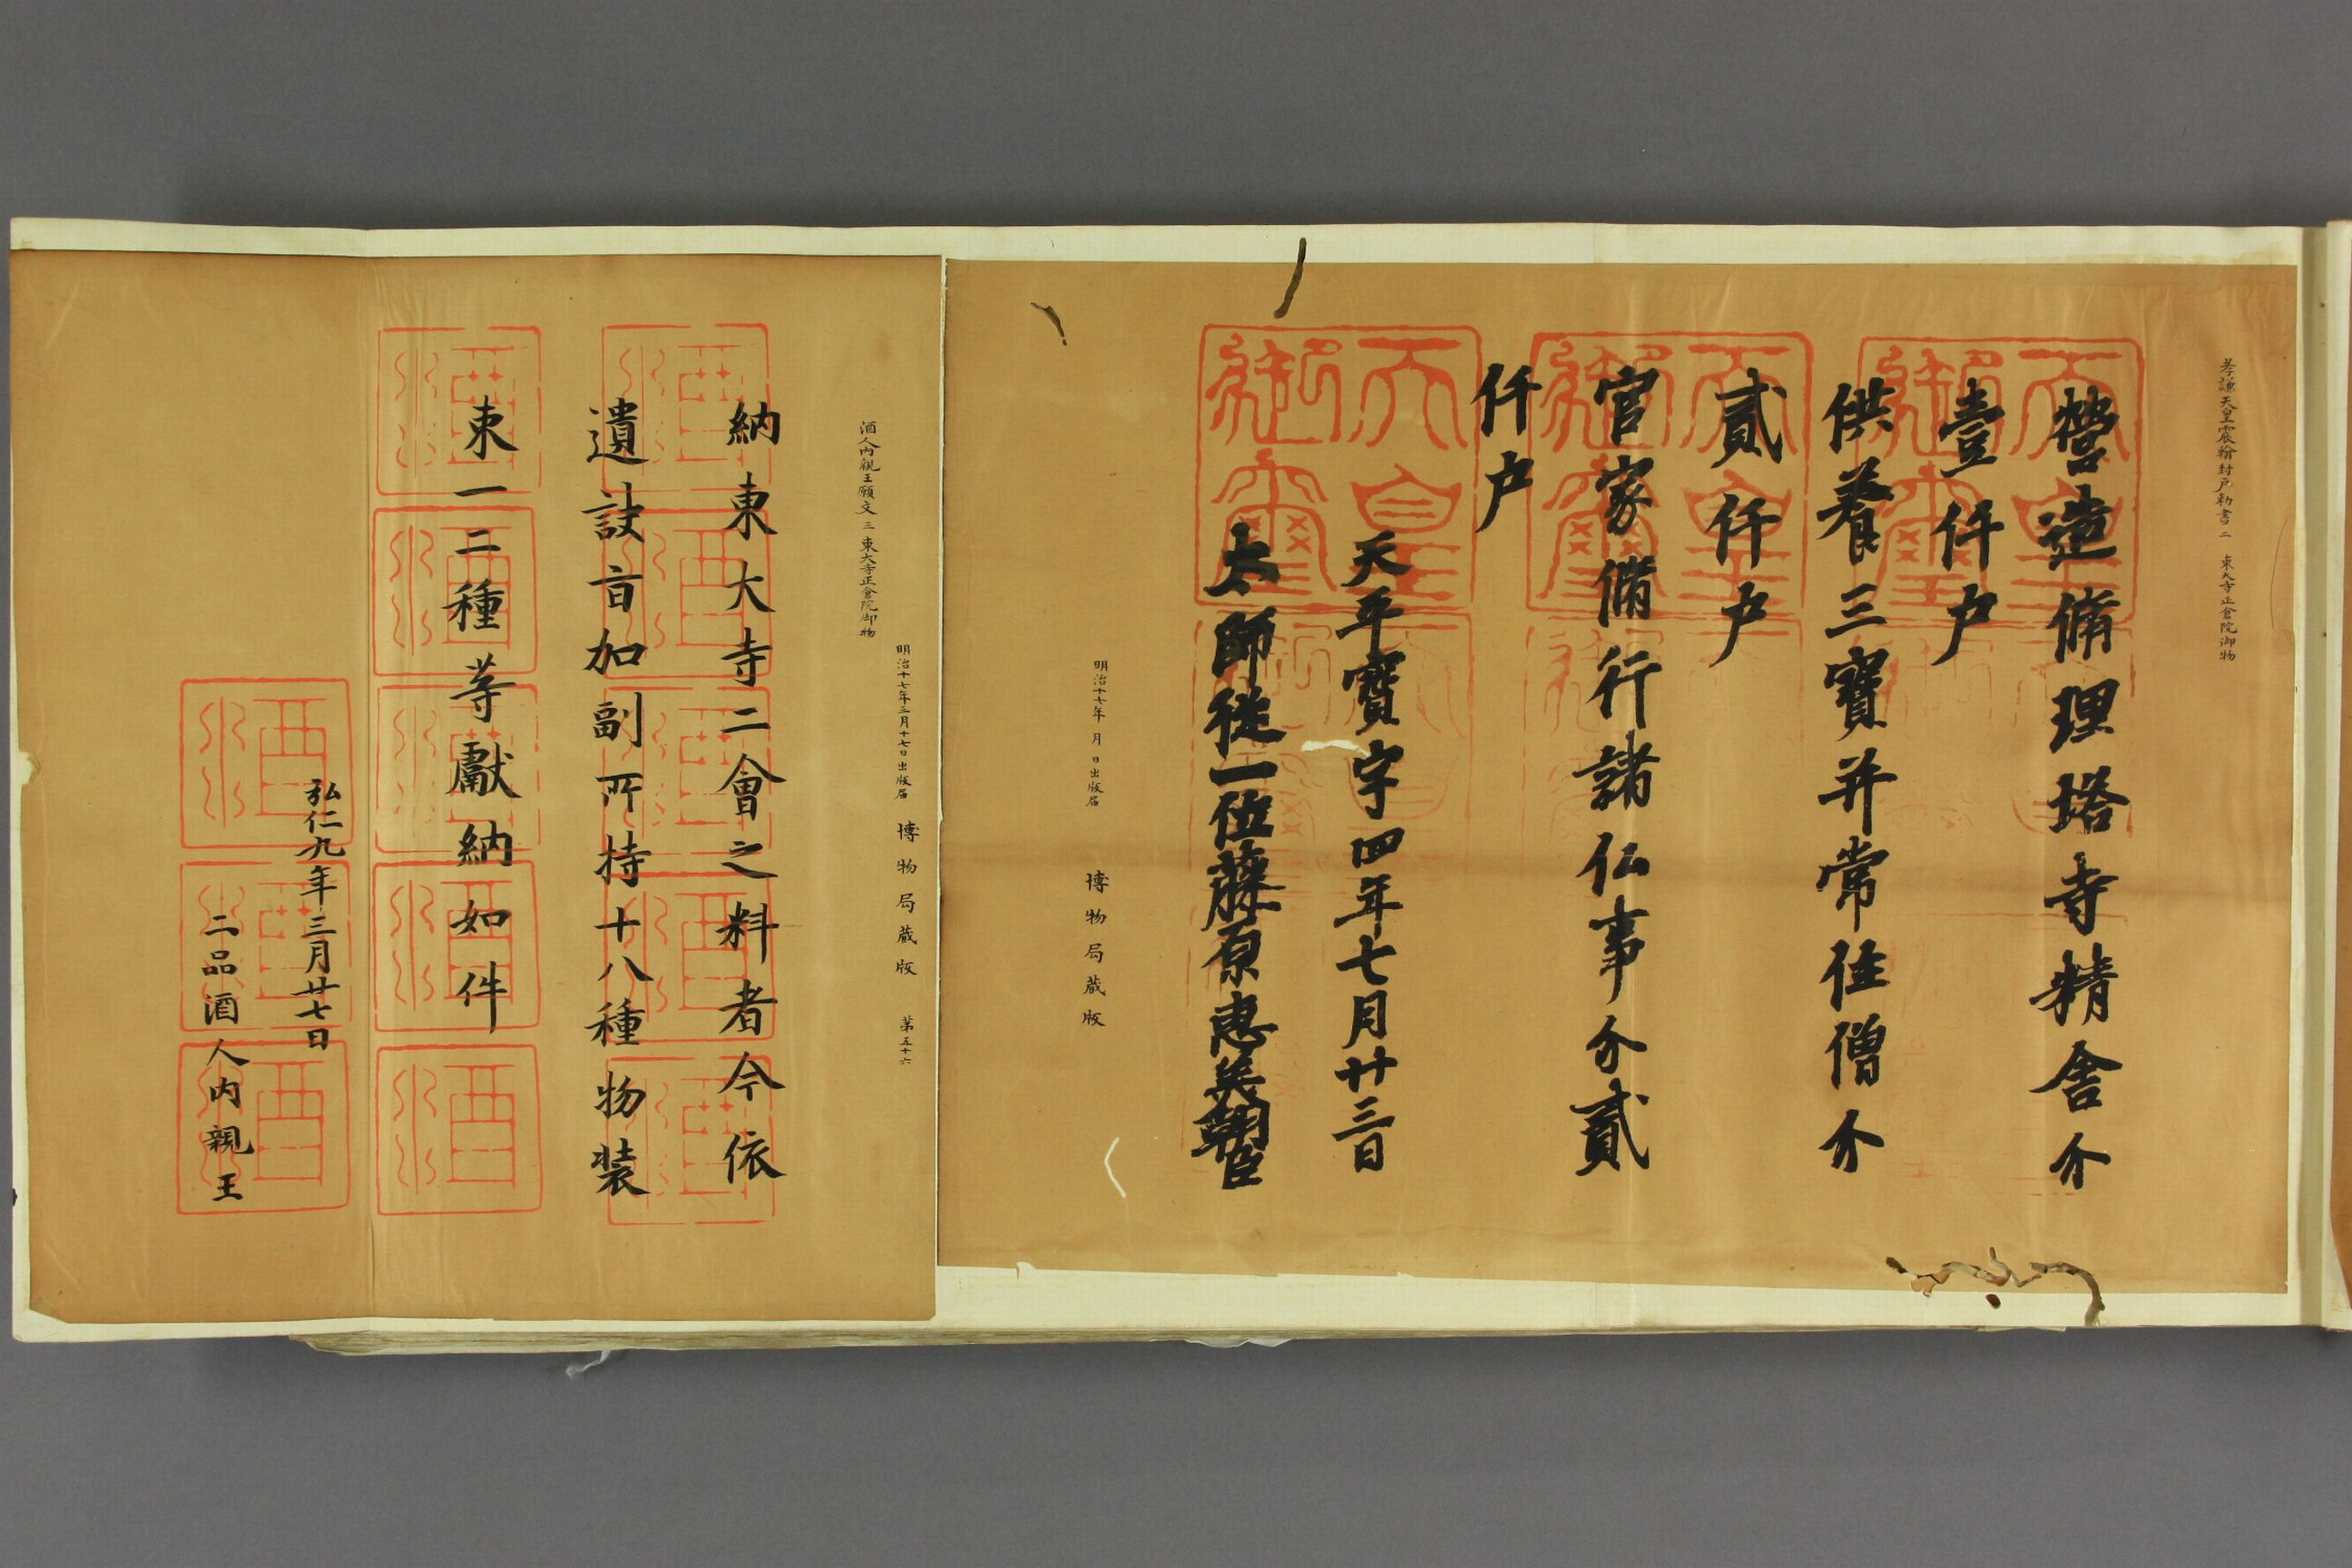 孝謙天皇震翰封戸勅書 二 東大寺正倉院御物
營造脩理塔寺精舎分
壹仟戸
供養三寶并常住僧分
貳仟戸
官家備行諸仏事分貳
仟戸
天平寶字四年七月廿三日
太師從一位藤原惠美朝臣
明治十七年 月 日出版届 博物局蔵版
天皇御璽
酒人内親王願文 三 東大寺正倉院御物
明治十七年三月十七日出版届 博物局蔵版 第五十六
納東大寺二會之料者今依
遺訣旨加副所持十八種物装
束一二種等獻納如件
弘仁九年三月廿七日
二品酒人内親王
酒